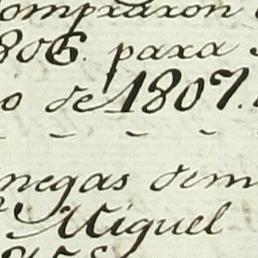 Compraron
1806. para
o de 1807.
negas dem
Miguel